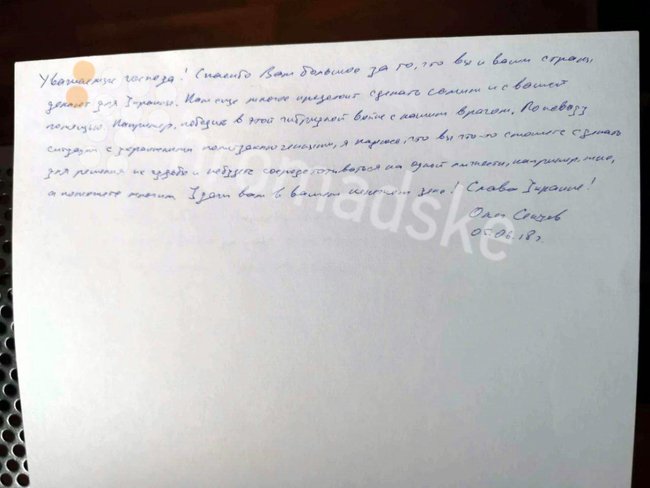 Уважаемые господа! Спасибо Вам большое за то, что вы и ваши страны
делают для Украины. Нам еще многое предстоит сделать самим и с вашей
помощью. Например, победив в этой гибридной войне с нашим врагом. По поводу
ситуации с украинскими политзаключенными, я надеюсь, что вы что-то сможете сделать
для решения и не будете сосредотачиваться на одной личности, например, мне,
а поможете многим. Удачи вам в вашем деле! Слава Украине!
Олег Сенцов
05.06.18 г.
hromadske